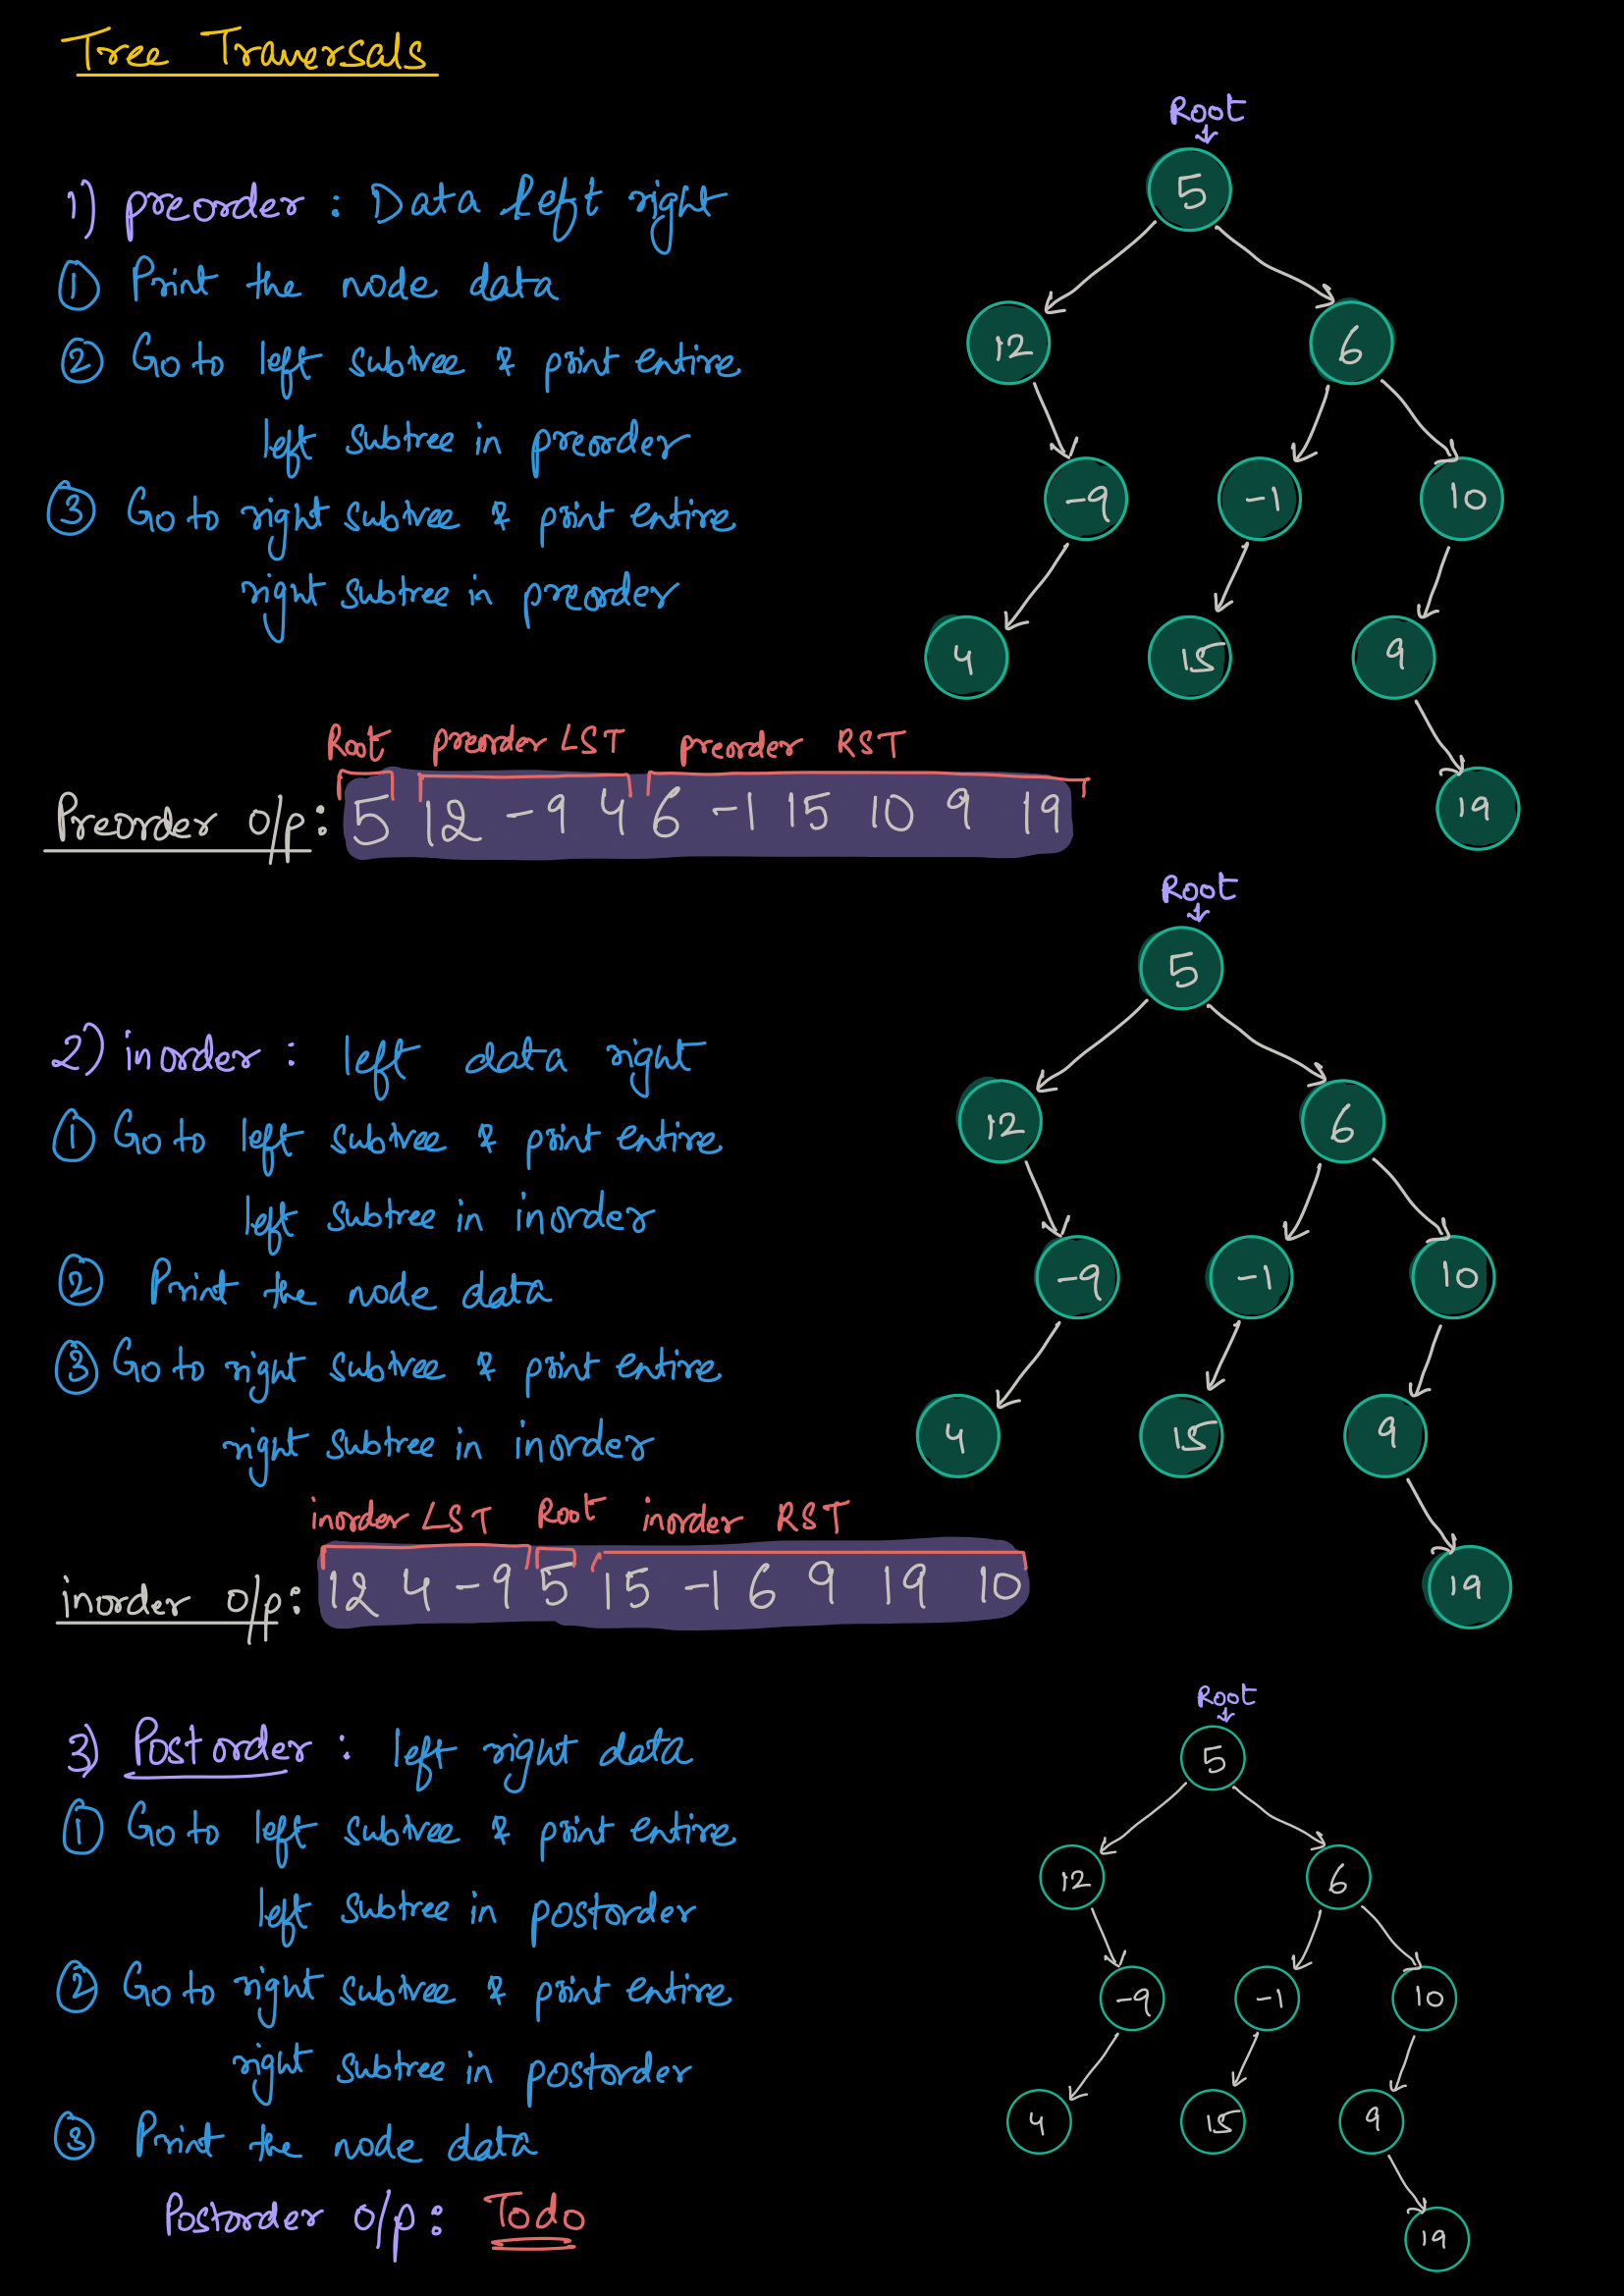 Tree Traversals
Root
5
1) preorder : Data left right
① Print the node data
12 6
② Go to left subtree & print entire
left subtree in preorder
-9 -1 10
③ Go to right subtree & print entire
right subtree in preorder
4 15 9
Root preorder LST preorder RST
19
Preorder o/p: 5 12 -9 4 6 -1 15 10 9 19
Root
5
2) inorder : left data right
12 6
① Go to left subtree & print entire
left subtree in inorder
-9 -1 10
② Print the node data
③ Go to right subtree & print entire
right subtree in inorder
4 15 9
inorder LST Root inorder RST
19
inorder o/p: 12 4 -9 5 15 -1 6 9 19 10
Root
5
3) Postorder : left right data
① Go to left subtree & print entire
12 6
left subtree in postorder
② Go to right subtree & print entire
-9 -1 10
right subtree in postorder
4 15 9
③ Print the node data
Postorder o/p: Todo
19